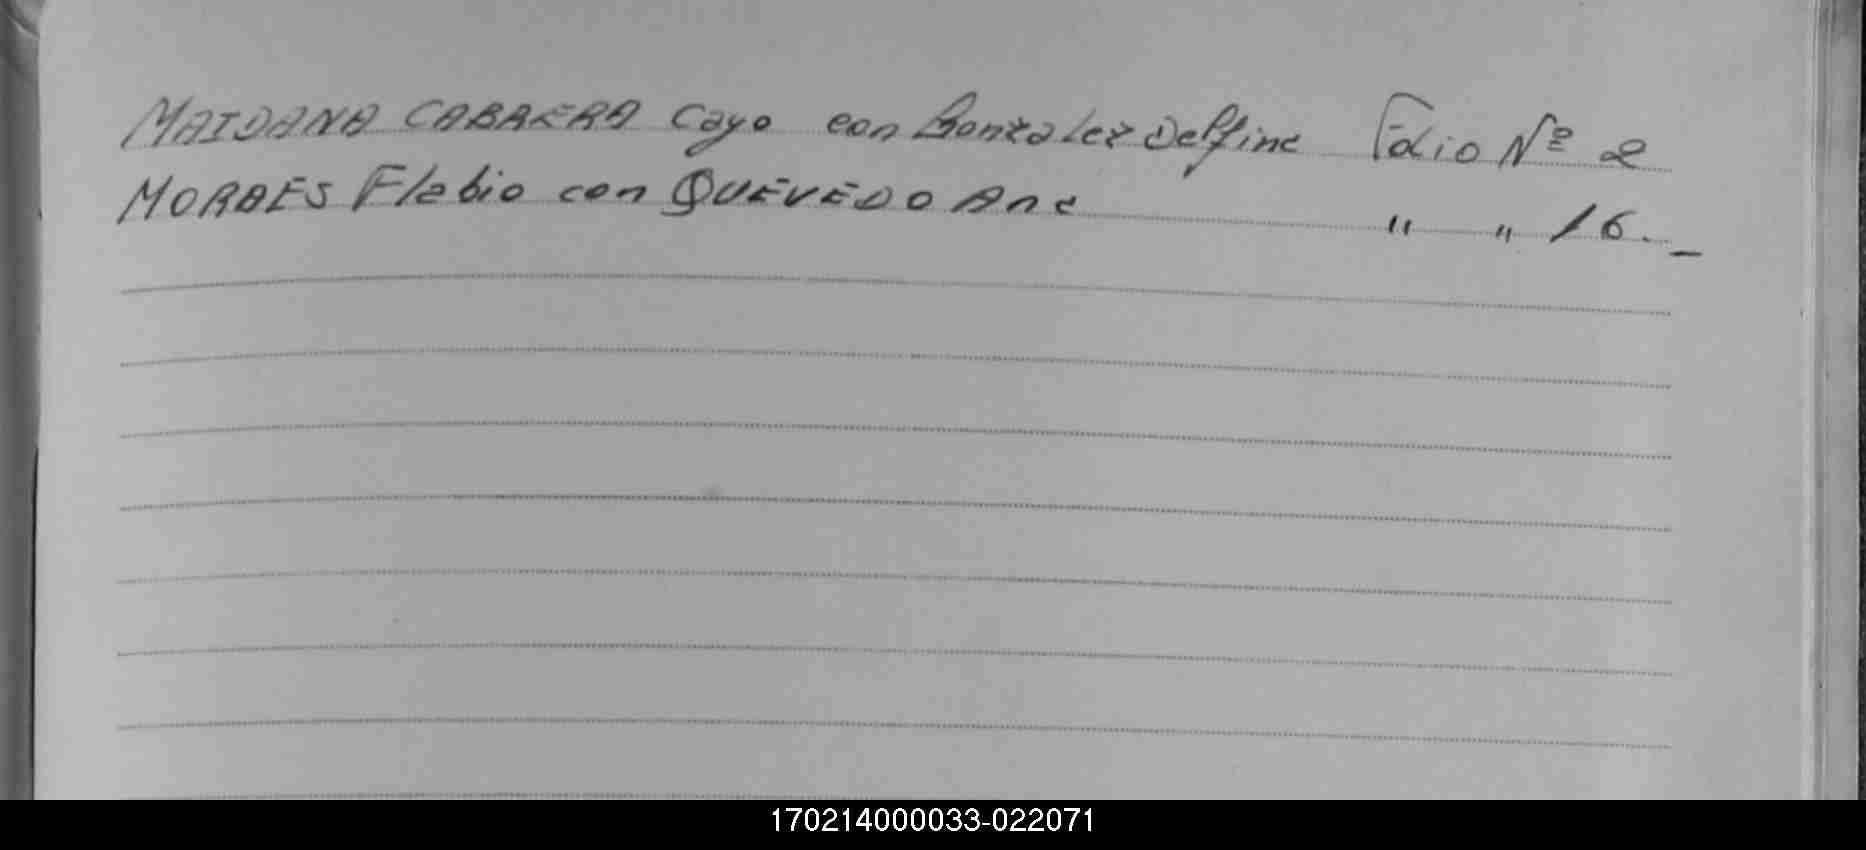 MAIDANA CABRERA Cayo con Gonzalez Delfina Folio Nº 2
MORAES Flabio con QUEVEDO Ana " " 16._
170214000033-022071